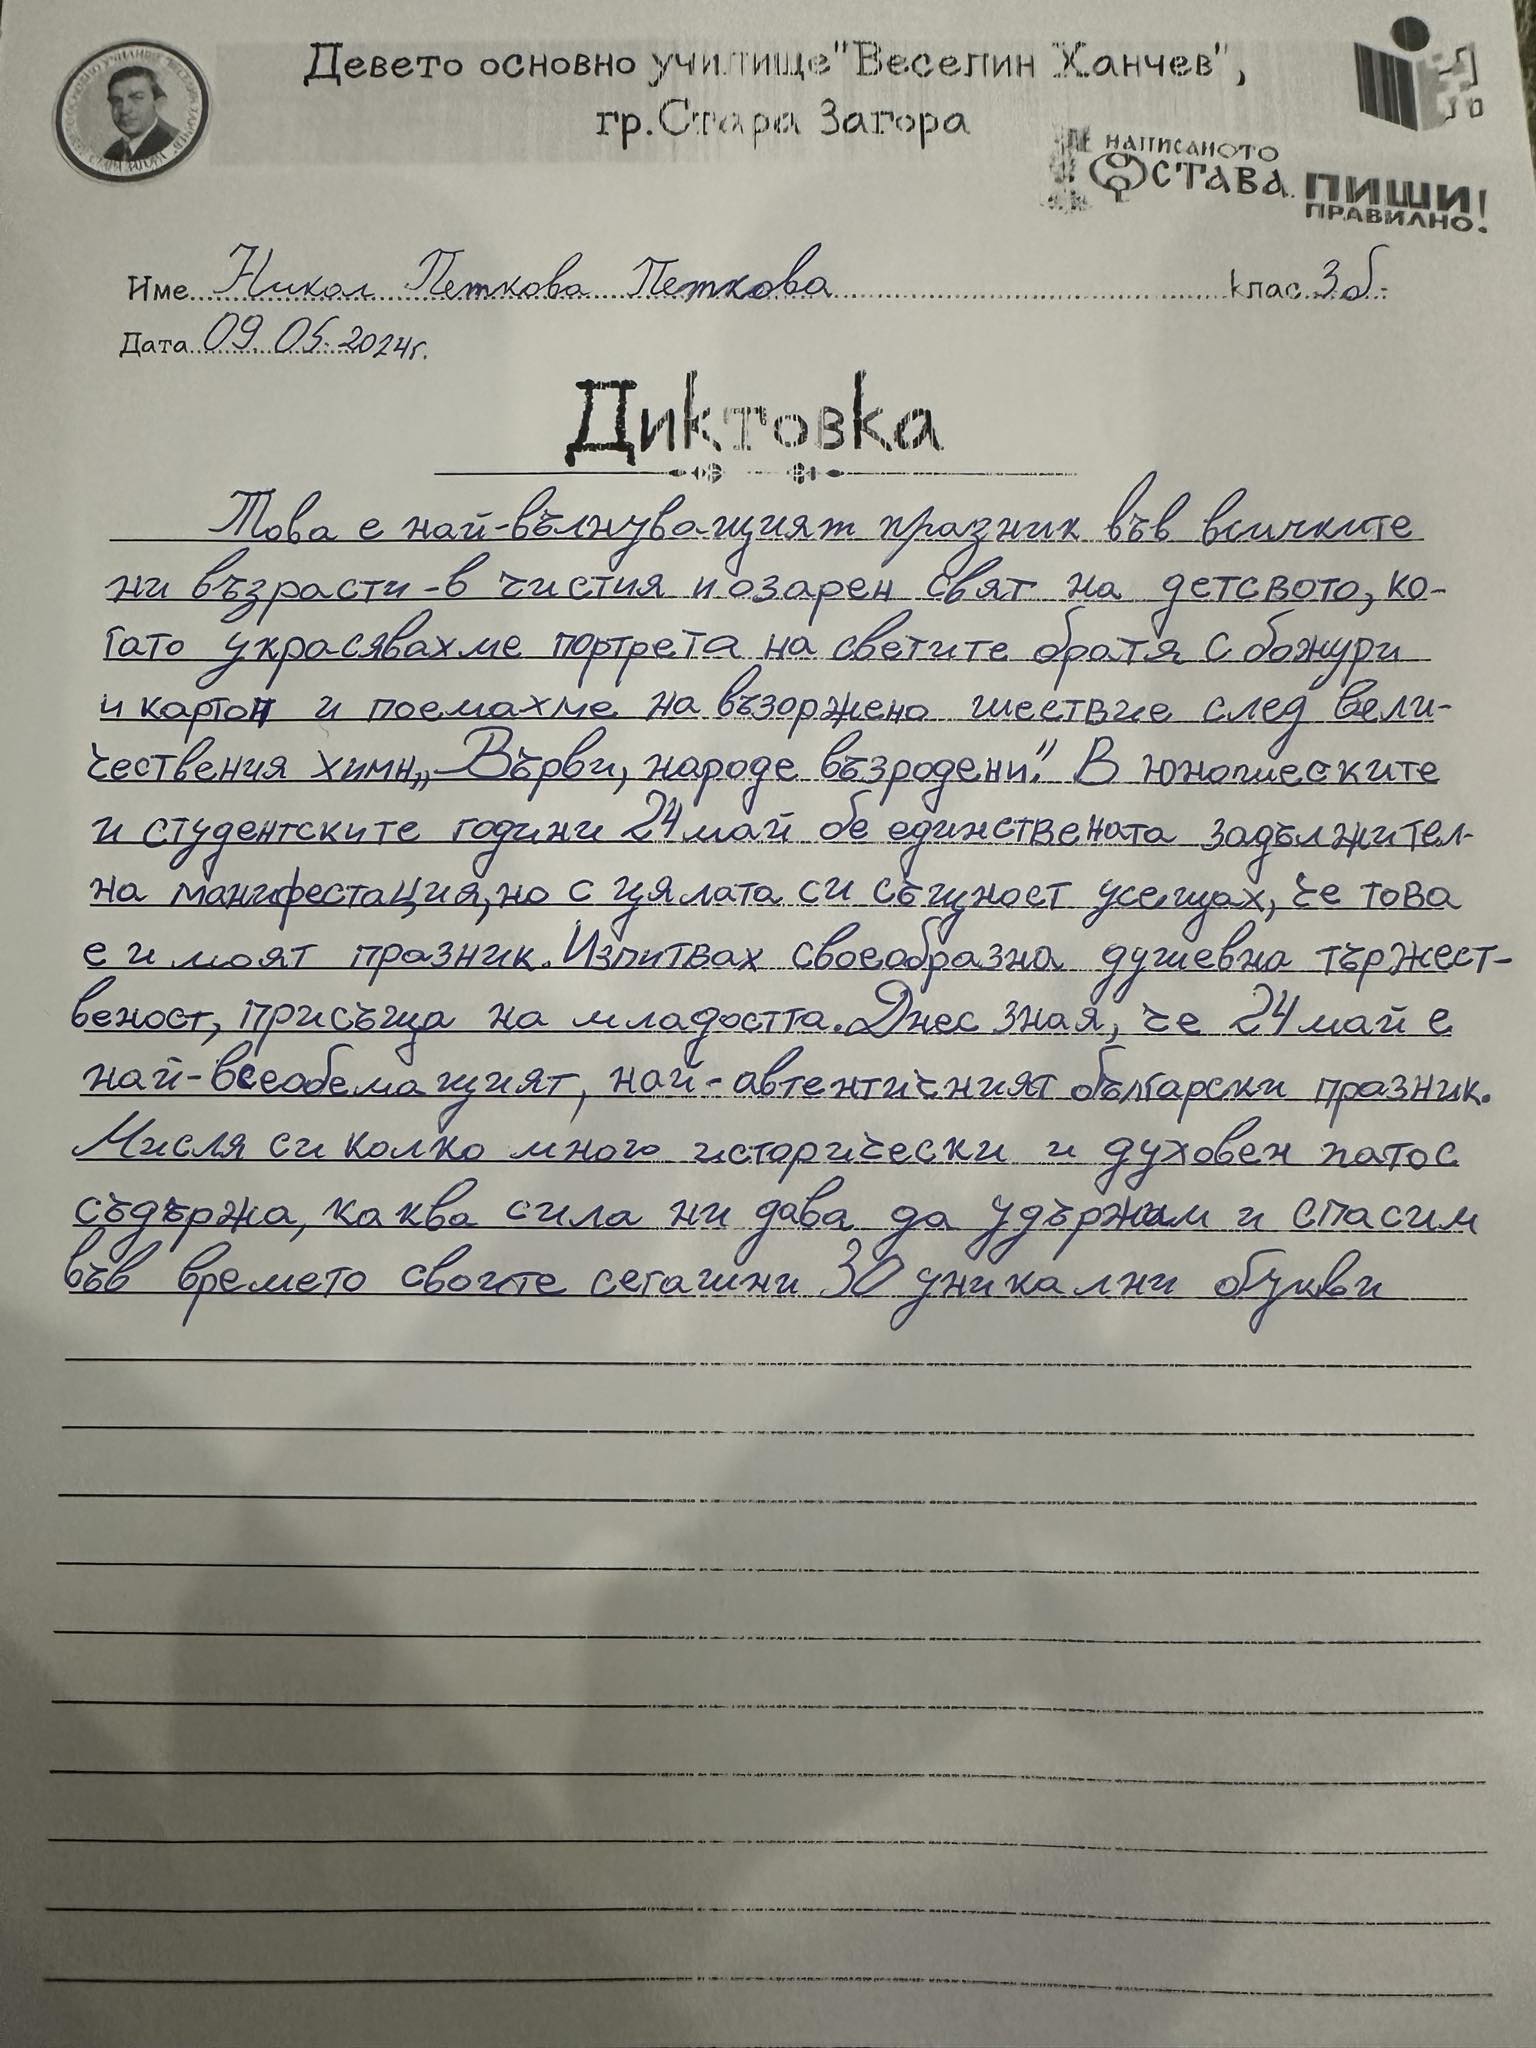 Девето основно училище "Веселин Ханчев",
гр. Стара Загора
НАПИСАНОТО
ОСТАВА.
ПИШИ
ПРАВИЛНО!
Име Никол Петкова Петкова клас 3б
Дата 09.05.2024г.
Диктовка
Това е най-вълнуващият празник във всичките
ни възрасти - в чистия и озарен свят на детсвото, ко-
гато украсявахме портрета на светите братя с божури
и картон и поемахме на възоржено шествие след вели-
чествения химн „Върви, народе възродени". В юношеските
и студентските години 24 май бе единствената задължител-
на манифестация, но с цялата си същност усещах, че това
е и моят празник. Изпитвах своеобразна душевна тържест-
веност, присъща на младостта. Днес зная, че 24 май е
най-всеобемащият, най-автентичният български празник.
Мисля си колко много исторически и духовен патос
съдържа, каква сила ни дава да удържим и спасим
във времето своите сегашни 30 уникални букви